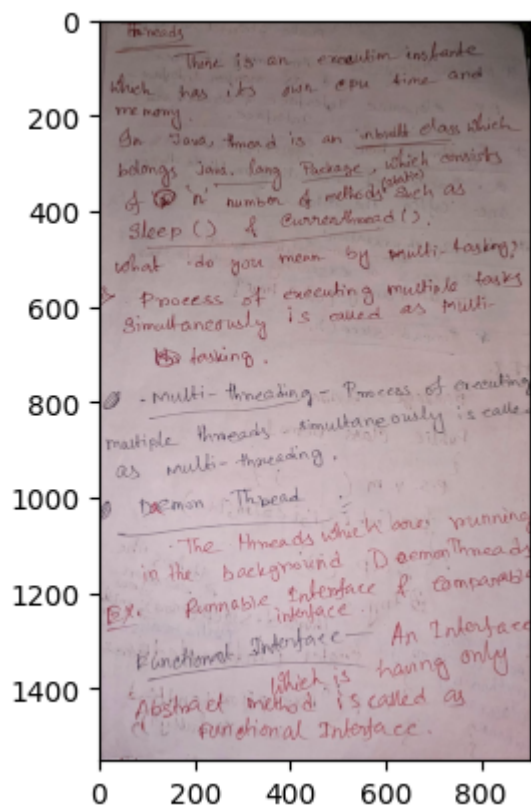 Threads
Thire is an execution instante
which has its own cpu time and
memory.
In Java, thread is an inbuilt class which
belongs Java. lang Package, which consists
of 'n' number of methods (static) such as
Sleep () & Currenthread ().
what do you mean by multi-tasking?
> Process of executing multiple tasks
Simultaneously is called as Multi-
tasking.
- Multi-threading - Process of executing
multiple threads simultaneously is calle
as multi-threading.
Daemon Thread
The threads which are running
in the background Daemon Threads
Ex. Runnable Interface & comparable
interface.
Functional Interface - An Interface
which is having only
Abstract method is called as
Functional Interface.
0
200
400
600
800
1000
1200
1400
0 200 400 600 800